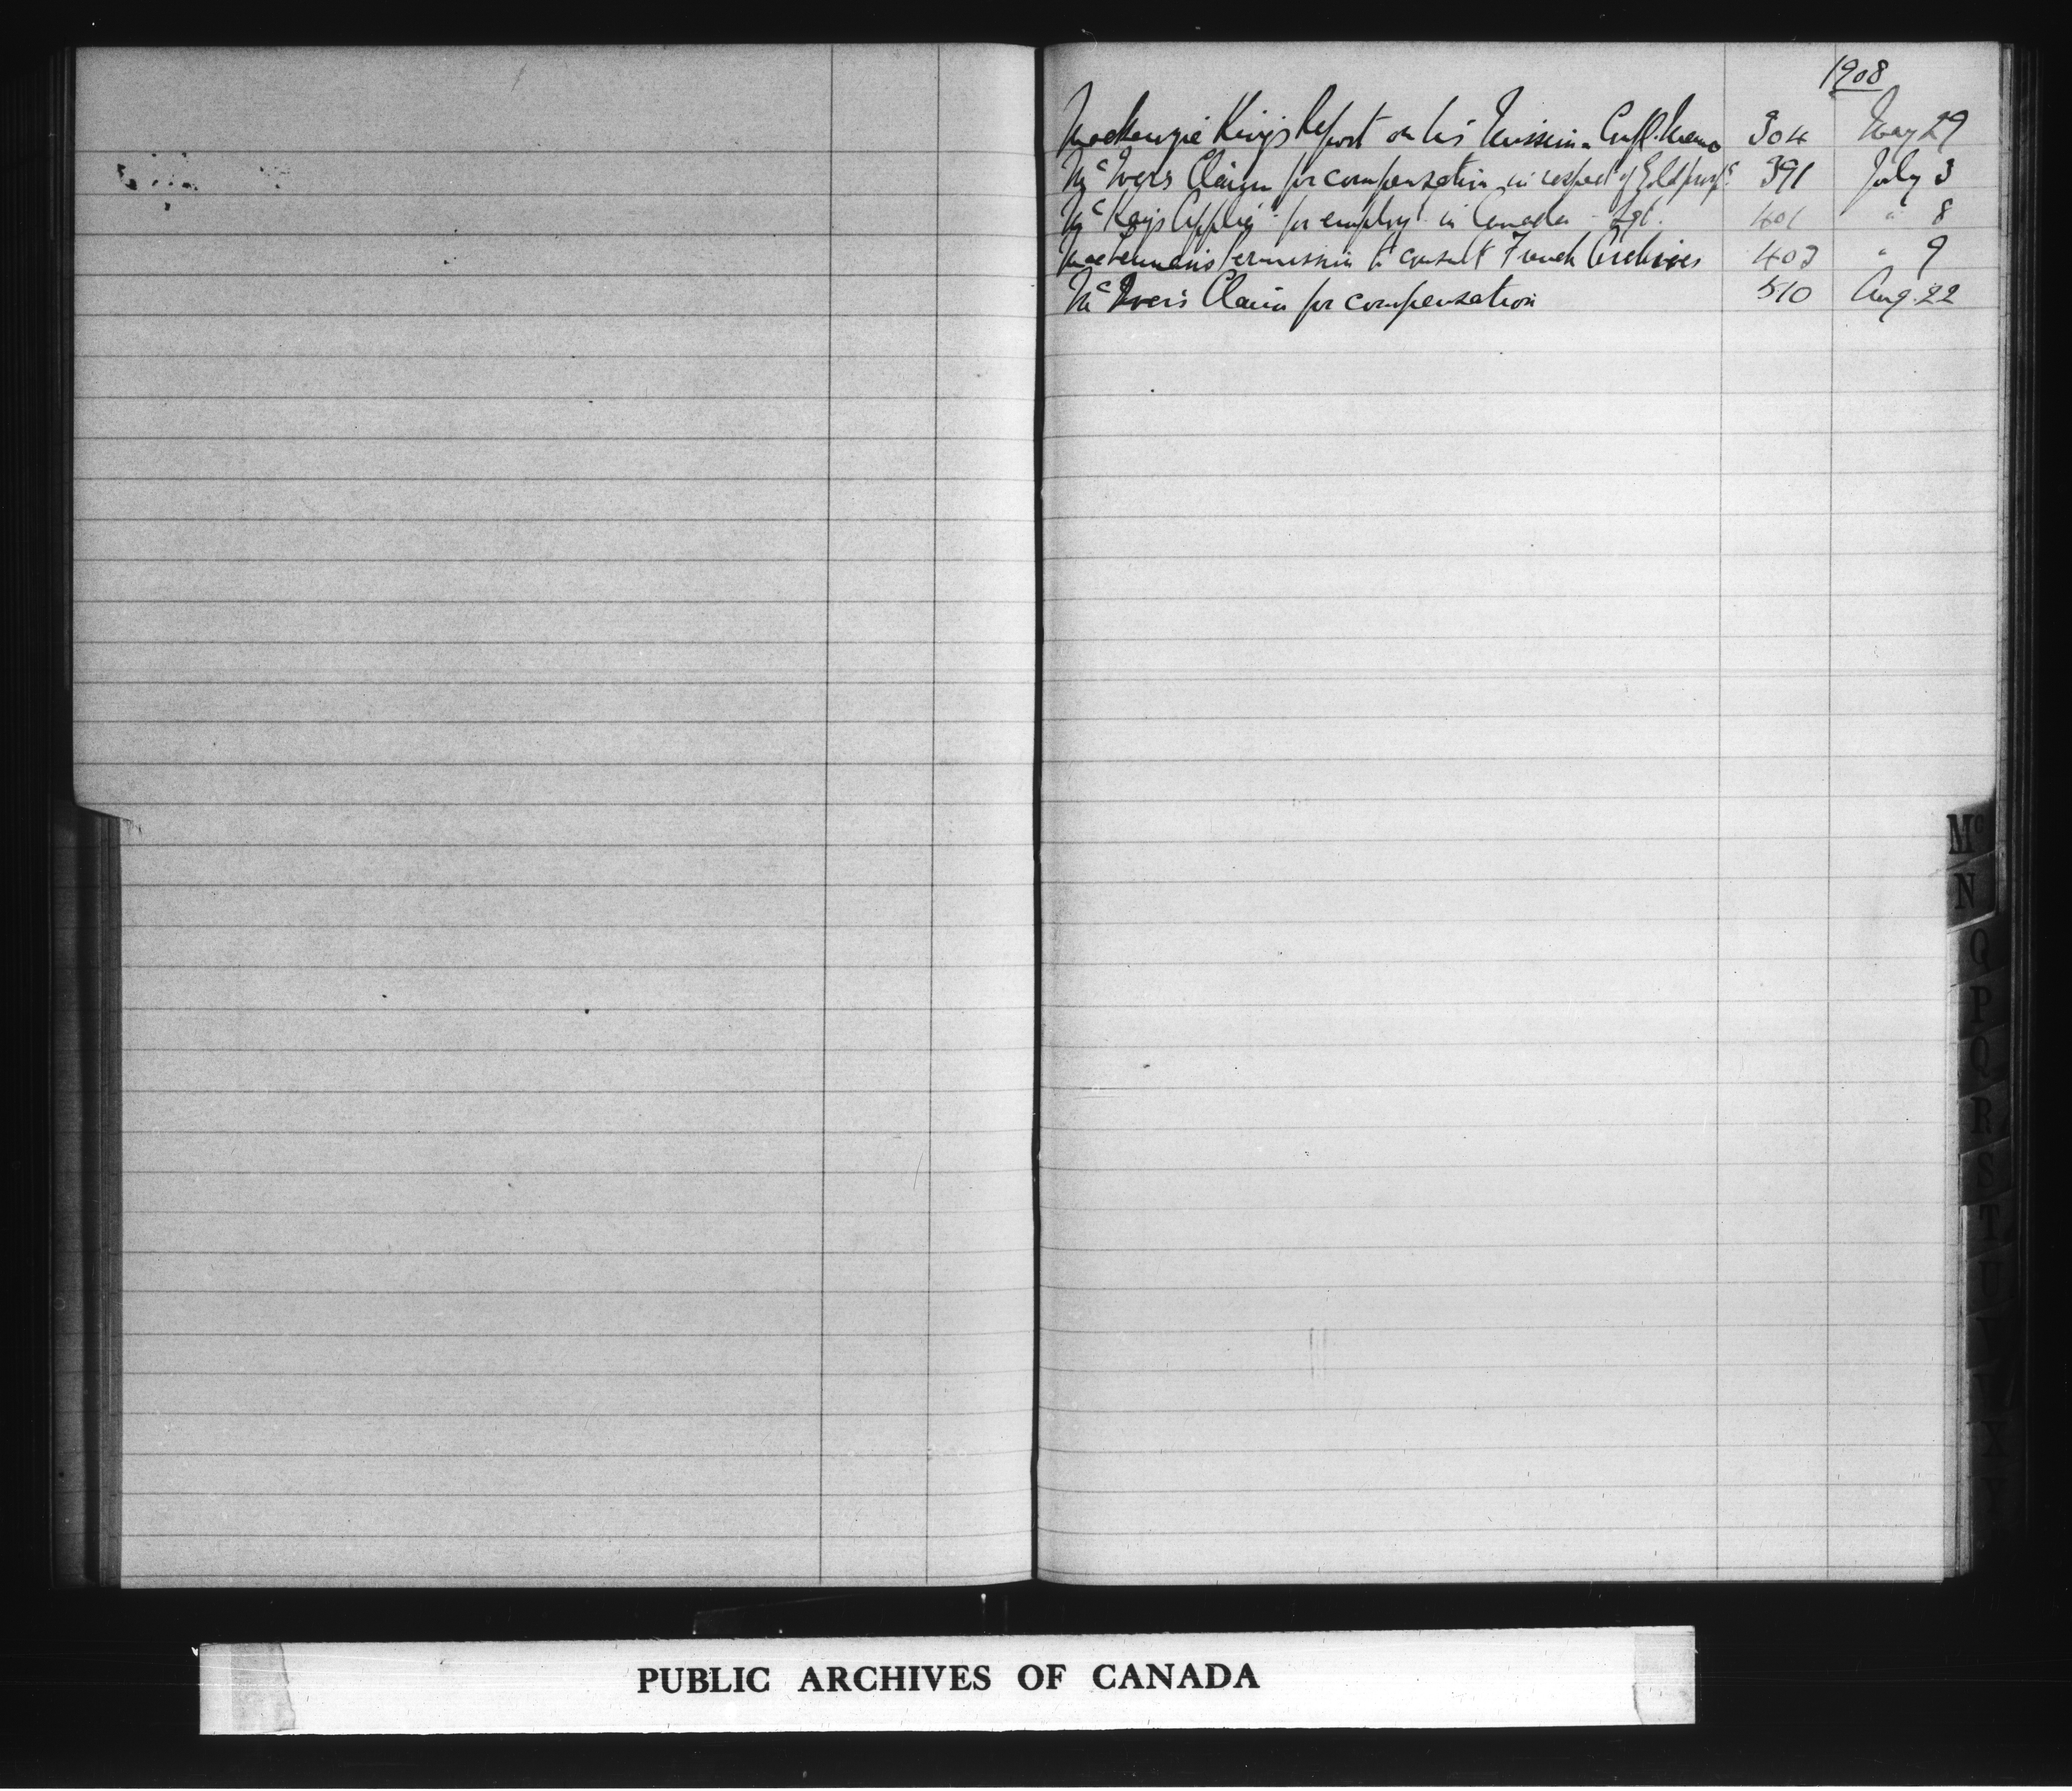 1908
Mackenzie King's Report on his Mission. Conf. Memo 304 May 29
Mc Iver's Claim for compensation in respect of Gold 391 July 3
Mc Kay's Applicn for employt in Canada 401 " 8
MacLennan's Permission to consult French Archives 403 " 9
Mc Iver's Claim for compensation 510 Aug. 22
Mc
N
O
P
Q
R
S
T
U
V
X
PUBLIC ARCHIVES OF CANADA